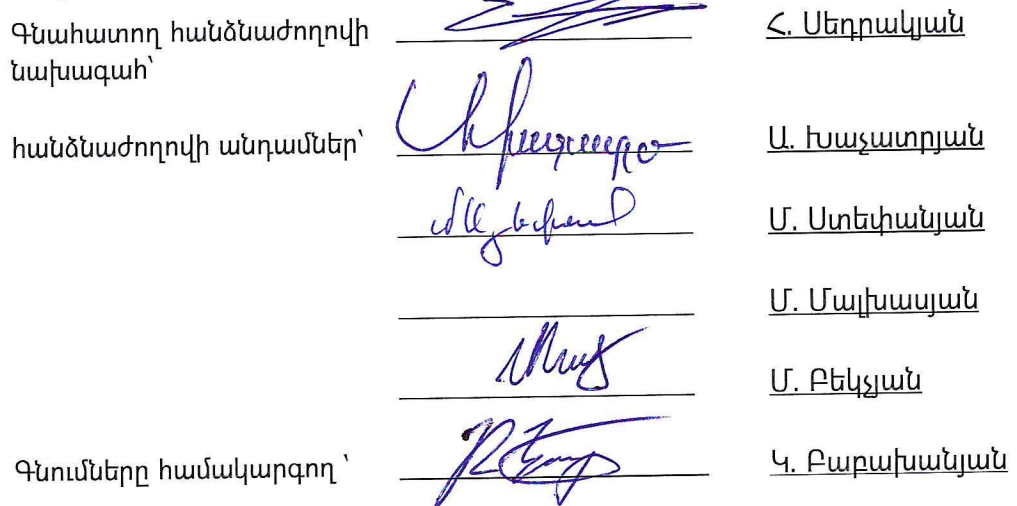 Գնահատող հանձնաժողովի Հ. Սեդրակյան
նախագահ՝
հանձնաժողովի անդամներ՝ Ա. Խաչատրյան
Մ. Ստեփանյան
Մ. Մալխասյան
Մ. Բեկչյան
Գնումները համակարգող ՝ Կ. Բաբախանյան